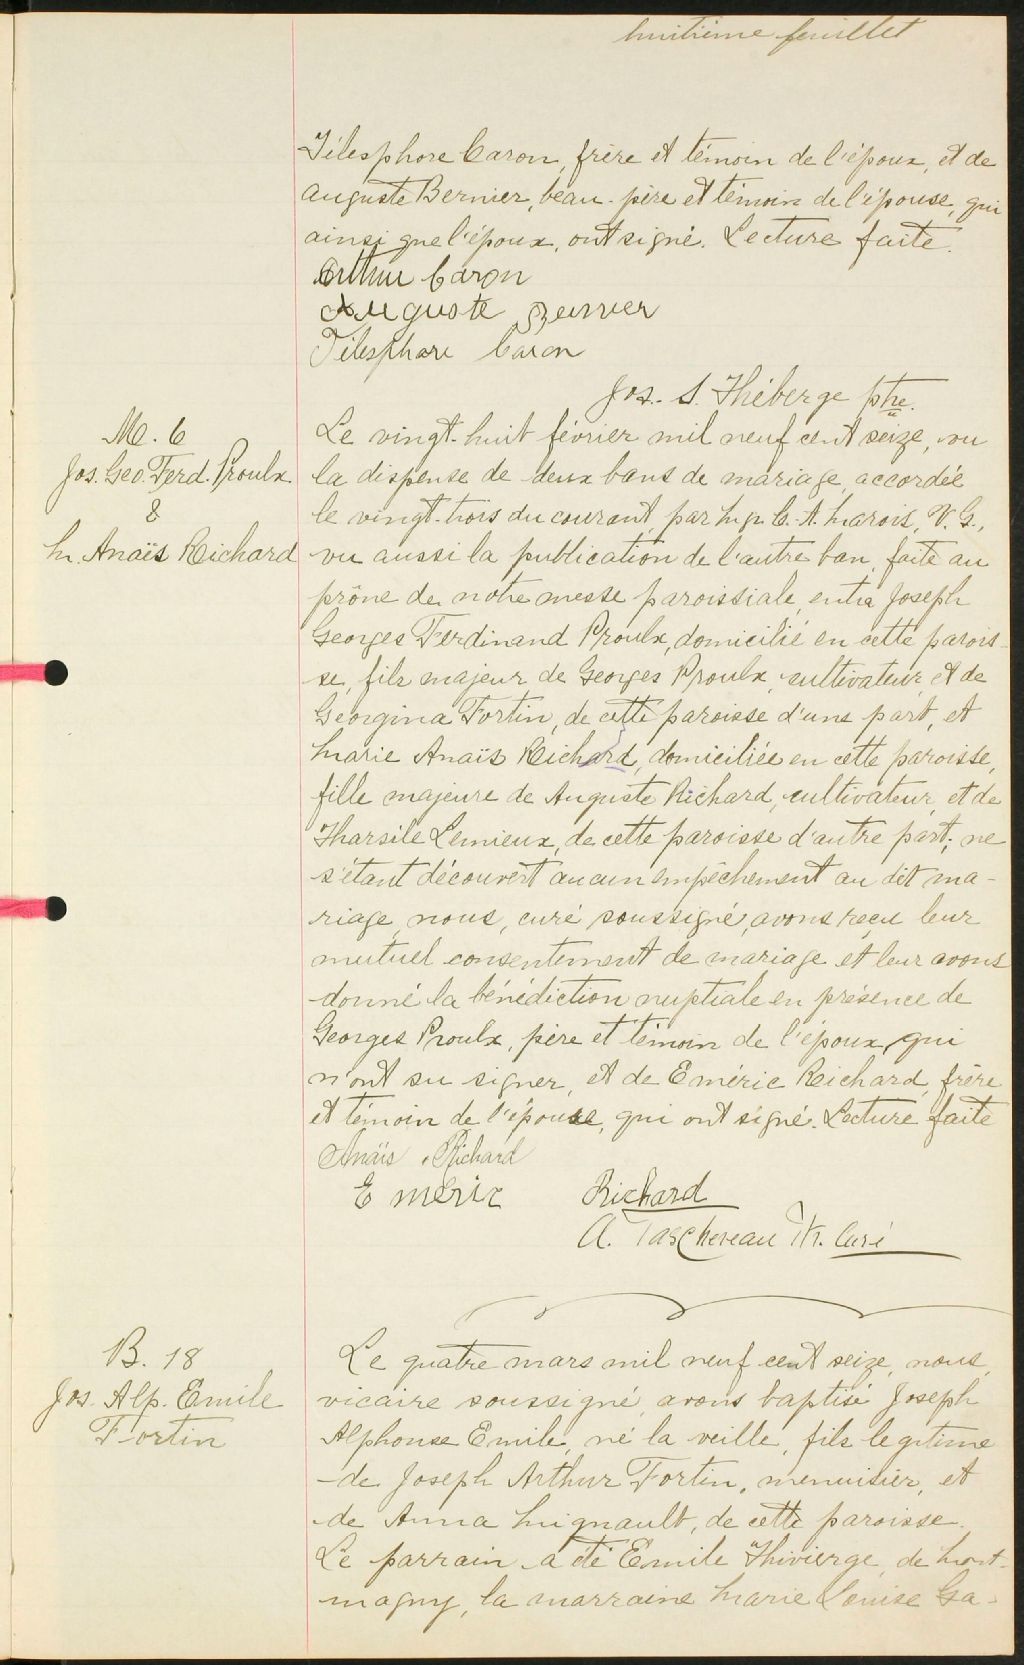 huitième feuillet
Télesphore Caron, frère et témoin de l'époux, et de
Auguste Bernier, beau-père et témoin de l'épouse, qui
ainsi que l'époux, ont signé. Lecture faite.
Arthur Caron
Auguste Bernier
Télesphore Caron
Jos. S. Théberge ptre.
M. 6
Jos. Geo. Ferd. Proulx
&
M. Anaïs Richard
Le vingt-huit février mil neuf cent seize, vu
la dispense de deux bans de mariage, accordée
le vingt-trois du courant, par Mgr. C.-A. Marois, V. G.,
vu aussi la publication de l'autre ban, faite au
prône de notre messe paroissiale, entre Joseph
Georges Ferdinand Proulx, domicilié en cette parois-
se, fils majeur de Georges Proulx, cultivateur, et de
Georgina Fortin, de cette paroisse d'une part, et
Marie Anaïs Richard, domiciliée en cette paroisse,
fille majeure de Auguste Richard, cultivateur, et de
Tharsile Lemieux, de cette paroisse d'autre part; ne
s'étant découvert aucun empêchement au dit ma-
riage, nous, curé soussigné, avons reçu leur
mutuel consentement de mariage et leur avons
donné la bénédiction nuptiale en présence de
Georges Proulx, père et témoin de l'époux, qui
n'ont su signer, et de Eméric Richard, frère
et témoin de l'épouse, qui ont signé. Lecture faite
Anaïs Richard
Eméric Richard
A. Taschereau Ptr. Curé
B. 18
Jos. Alp. Emile
Fortin
Le quatre mars mil neuf cent seize, nous,
vicaire soussigné, avons baptisé Joseph
Alphonse Emile, né la veille, fils légitime
de Joseph Arthur Fortin, menuisier, et
de Anna Mignault, de cette paroisse.
Le parrain a été Emile Thivierge, de Mont-
magny, la marraine Marie Louise Ga-